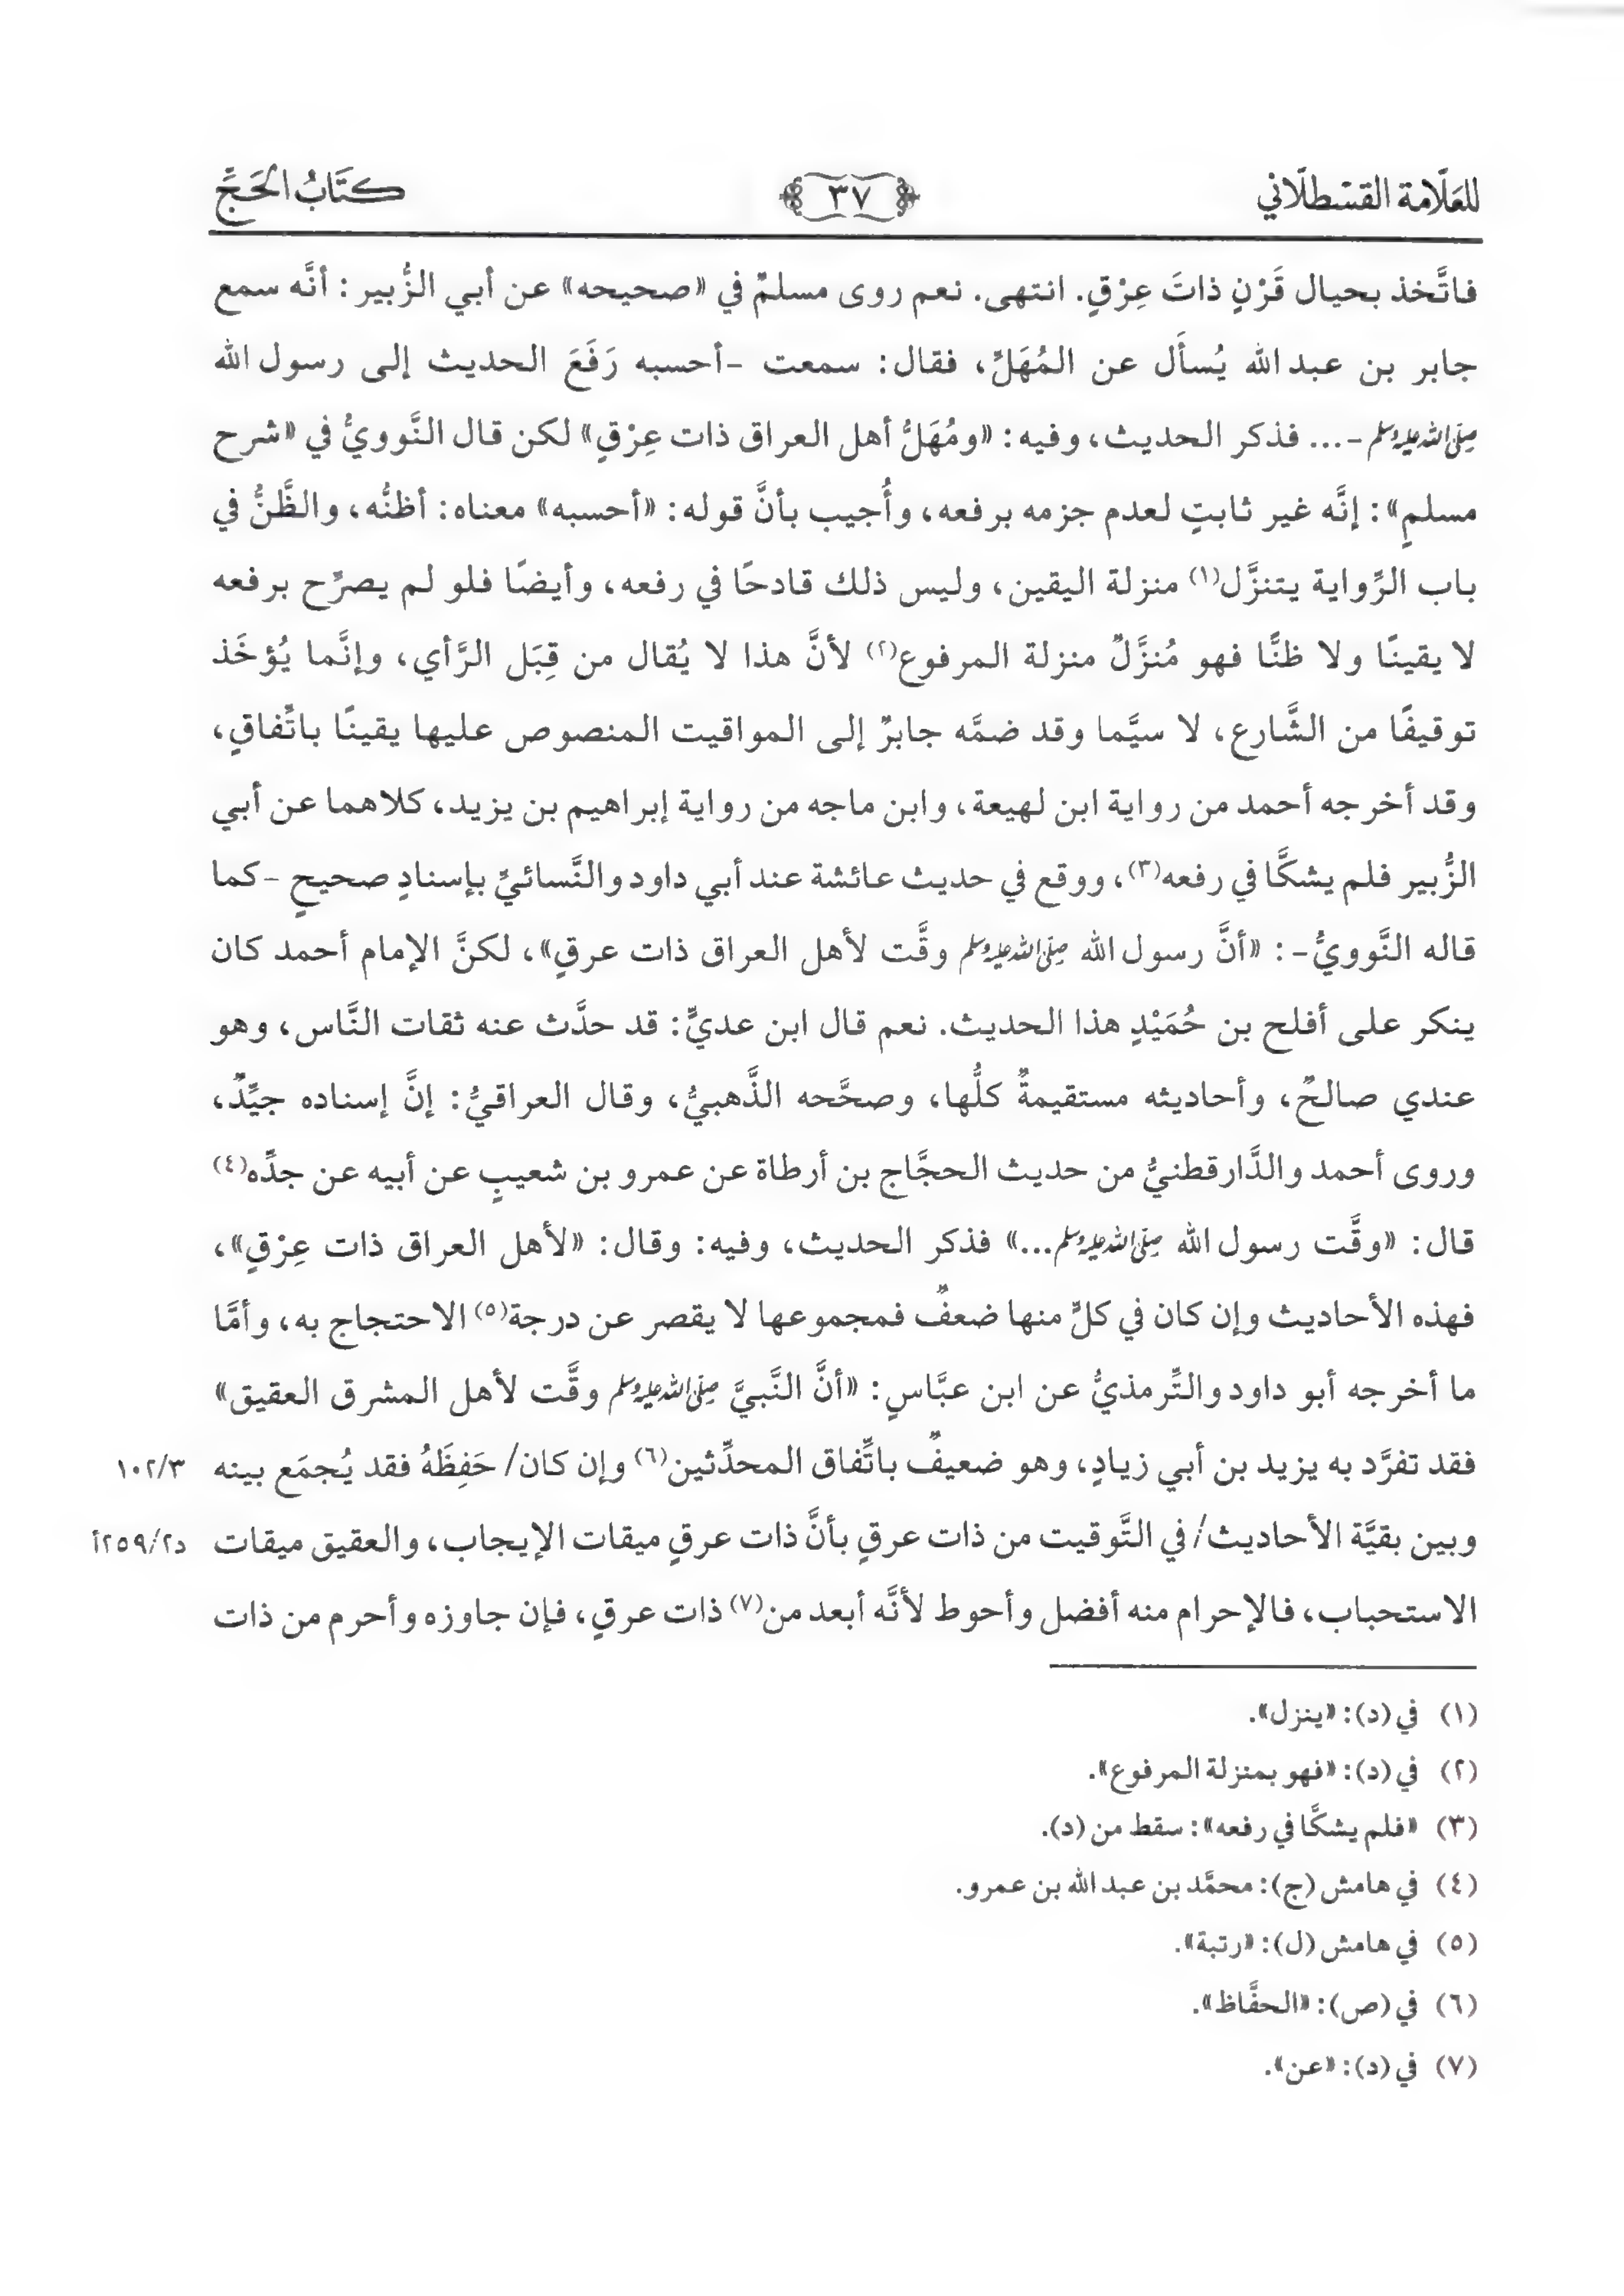 للعلّامة القسطلّاني
٣٧
كتَابُ الحَجِّ
فاتَّخذ بحيال قَرْنٍ ذاتَ عِرْقٍ. انتهى. نعم روى مسلمٌ في «صحيحه» عن أبي الزُّبير: أنَّه سمع
جابر بن عبد الله يُسأَل عن المُهَلِّ، فقال: سمعت -أحسبه رَفَعَ الحديث إلى رسول الله
صلى الله عليه وسلم -... فذكر الحديث، وفيه: «ومُهَلُّ أهل العراق ذات عِرْقٍ» لكن قال النَّوويُّ في «شرح
مسلمٍ»: إنَّه غير ثابتٍ لعدم جزمه برفعه، وأُجيب بأنَّ قوله: «أحسبه» معناه: أظنُّه، والظَّنُّ في
باب الرِّواية يتنزَّل(١) منزلة اليقين، وليس ذلك قادحًا في رفعه، وأيضًا فلو لم يصرِّح برفعه
لا يقينًا ولا ظنًّا فهو مُنزَّلٌ منزلة المرفوع(٢) لأنَّ هذا لا يُقال من قِبَل الرَّأي، وإنَّما يُؤخَذ
توقيفًا من الشَّارع، لا سيَّما وقد ضمَّه جابرٌ إلى المواقيت المنصوص عليها يقينًا باتِّفاقٍ،
وقد أخرجه أحمد من رواية ابن لهيعة، وابن ماجه من رواية إبراهيم بن يزيد، كلاهما عن أبي
الزُّبير فلم يشكَّا في رفعه(٣)، ووقع في حديث عائشة عند أبي داود والنَّسائيِّ بإسنادٍ صحيحٍ -كما
قاله النَّوويُّ-: «أنَّ رسول الله صلى الله عليه وسلم وقَّت لأهل العراق ذات عرقٍ»، لكنَّ الإمام أحمد كان
ينكر على أفلح بن حُمَيْدٍ هذا الحديث. نعم قال ابن عديٍّ: قد حدَّث عنه ثقات النَّاس، وهو
عندي صالحٌ، وأحاديثه مستقيمةٌ كلُّها، وصحَّحه الذَّهبيُّ، وقال العراقيُّ: إنَّ إسناده جيِّدٌ،
وروى أحمد والدَّارقطنيُّ من حديث الحجَّاج بن أرطاة عن عمرو بن شعيبٍ عن أبيه عن جدِّه(٤)
قال: «وقَّت رسول الله صلى الله عليه وسلم...» فذكر الحديث، وفيه: وقال: «لأهل العراق ذات عِرْقٍ»،
فهذه الأحاديث وإن كان في كلٍّ منها ضعفٌ فمجموعها لا يقصر عن درجة(٥) الاحتجاج به، وأمَّا
ما أخرجه أبو داود والتِّرمذيُّ عن ابن عبَّاسٍ: «أنَّ النَّبيَّ صلى الله عليه وسلم وقَّت لأهل المشرق العقيق»
فقد تفرَّد به يزيد بن أبي زيادٍ، وهو ضعيفٌ باتِّفاق المحدِّثين(٦) وإن كان/ حَفِظَهُ فقد يُجمَع بينه ١٠٢/٣
وبين بقيَّة الأحاديث/ في التَّوقيت من ذات عرقٍ بأنَّ ذات عرقٍ ميقات الإيجاب، والعقيق ميقات د٢٥٩/٢أ
الاستحباب، فالإحرام منه أفضل وأحوط لأنَّه أبعد من(٧) ذات عرقٍ، فإن جاوزه وأحرم من ذات
(١) في (د): «ينزل».
(٢) في (د): «فهو بمنزلة المرفوع».
(٣) «فلم يشكَّا في رفعه»: سقط من (د).
(٤) في هامش (ج): محمَّد بن عبد الله بن عمرو.
(٥) في هامش (ل): «رتبة».
(٦) في (ص): «الحفَّاظ».
(٧) في (د): «عن».